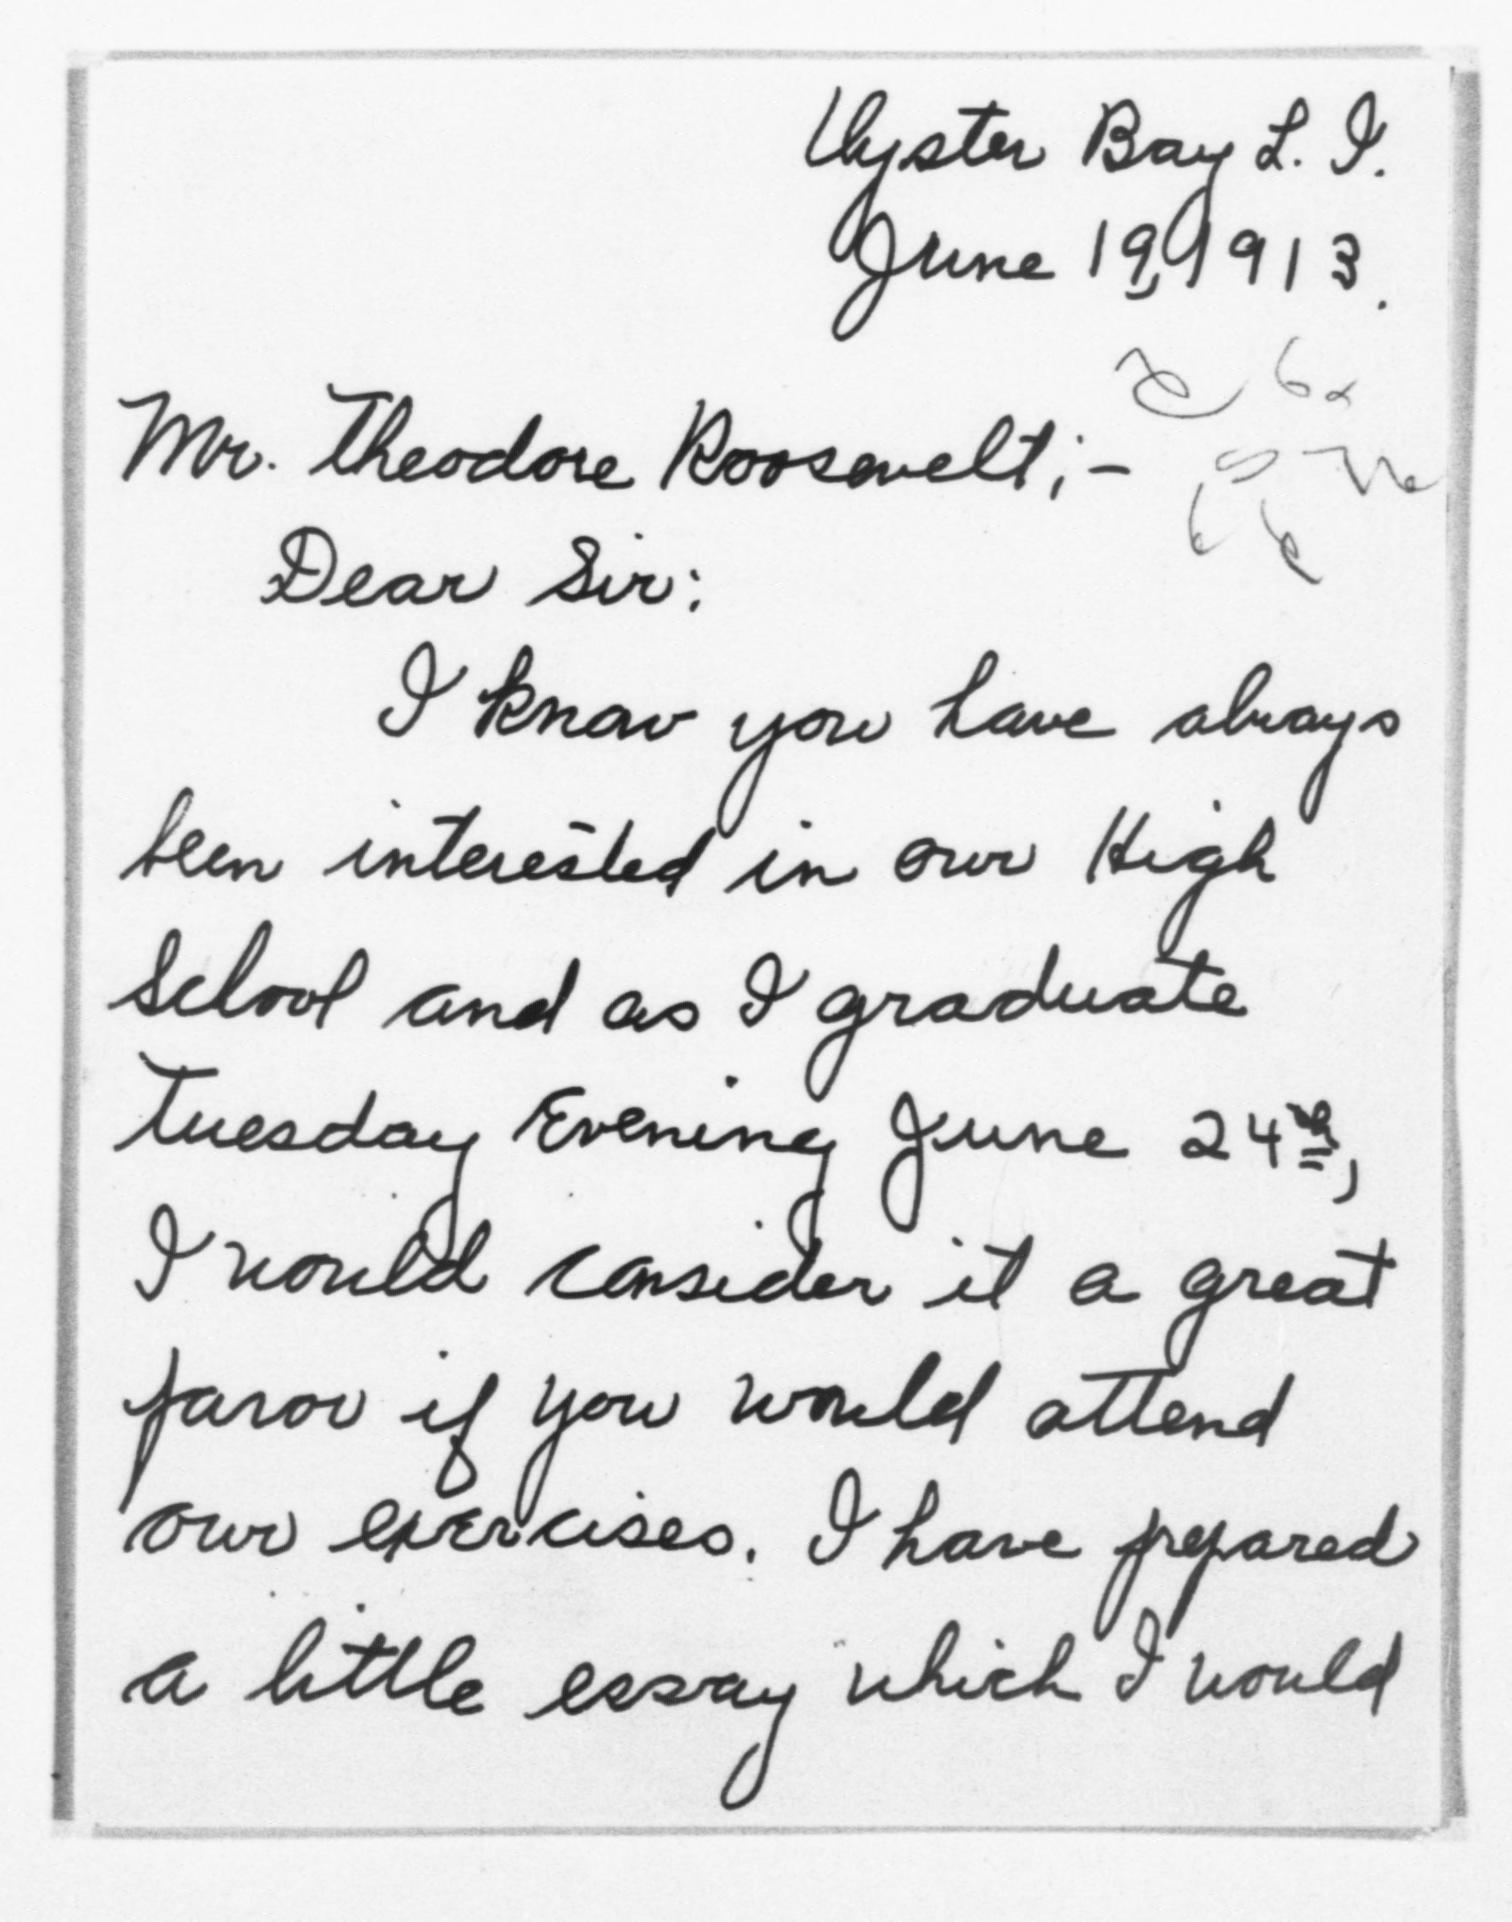 Oyster Bay L. I.
June 19, 1913.
Mr. Theodore Roosevelt;-
Dear Sir:
I know you have always
been interested in our High
School and as I graduate
Tuesday Evening June 24th,
I would consider it a great
favor if you would attend
our exercises. I have prepared
a little essay which I would